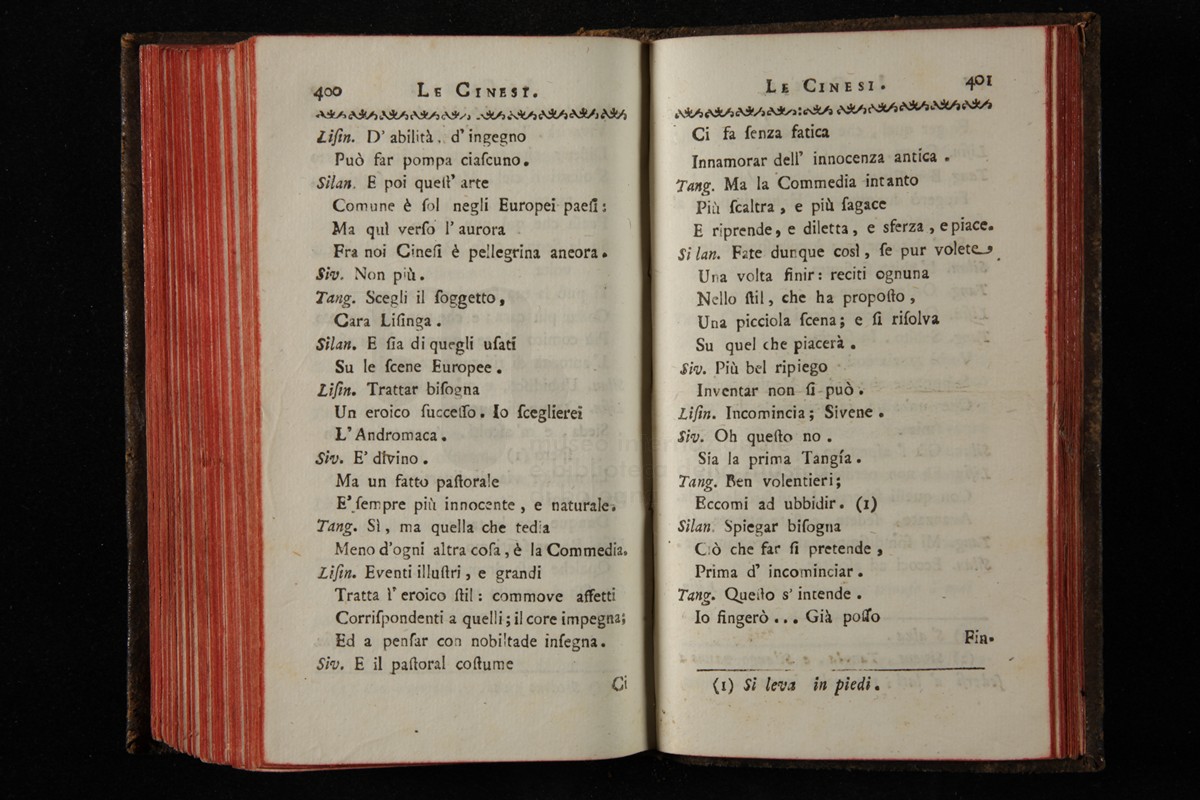 400 LE CINESI.
Liſin. D' abilità, d' ingegno
Può far pompa ciaſcuno.
Silan. E poi queſt' arte
Comune è ſol negli Europei paeſi:
Ma quì verſo l' aurora
Fra noi Cineſi è pellegrina ancora.
Siv. Non più.
Tang. Scegli il ſoggetto,
Cara Liſinga.
Silan. E ſia di quegli uſati
Su le ſcene Europee.
Liſin. Trattar biſogna
Un eroico ſucceſſo. Io ſceglierei
L' Andromaca.
Siv. E' divino.
Ma un fatto paſtorale
E' ſempre più innocente, e naturale.
Tang. Sì, ma quella che tedia
Meno d'ogni altra coſa, è la Commedia.
Liſin. Eventi illuſtri, e grandi
Tratta l' eroico ſtil: commove affetti
Corriſpondenti a quelli; il core impegna;
Ed a penſar con nobiltade inſegna.
Siv. E il paſtoral coſtume
Ci
LE CINESI. 401
Ci fa ſenza fatica
Innamorar dell' innocenza antica.
Tang. Ma la Commedia intanto
Più ſcaltra, e più ſagace
E riprende, e diletta, e sferza, e piace.
Silan. Fate dunque così, ſe pur volete
Una volta finir: reciti ognuna
Nello ſtil, che ha propoſto,
Una picciola ſcena; e ſi riſolva
Su quel che piacerà.
Siv. Più bel ripiego
Inventar non ſi può.
Liſin. Incomincia; Sivene.
Siv. Oh queſto no.
Sia la prima Tangía.
Tang. Ben volentieri;
Eccomi ad ubbidir. (1)
Silan. Spiegar biſogna
Ciò che far ſi pretende,
Prima d' incominciar.
Tang. Queſto s' intende.
Io fingerò... Già poſſo
Fin-
(1) Si leva in piedi.